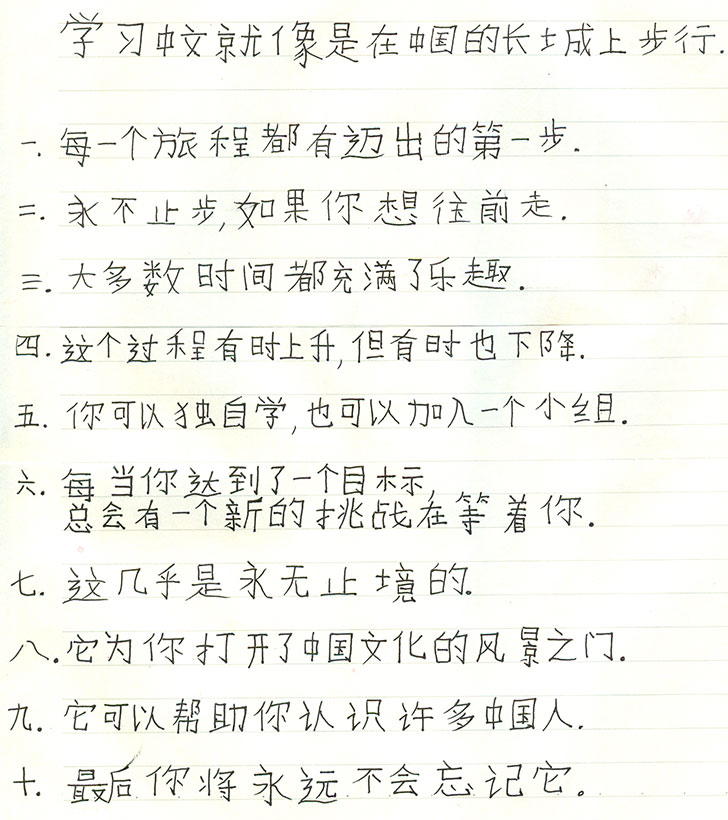 学习中文就像是在中国的长城上步行.
一. 每一个旅程都有迈出的第一步.
二. 永不止步,如果你想往前走.
三. 大多数时间都充满了乐趣.
四. 这个过程有时上升,但有时也下降.
五. 你可以独自学,也可以加入一个小组.
六. 每当你达到了一个目标,
总会有一个新的挑战在等着你.
七. 这几乎是永无止境的.
八. 它为你打开了中国文化的风景之门.
九. 它可以帮助你认识许多中国人.
十. 最后你将永远不会忘记它。